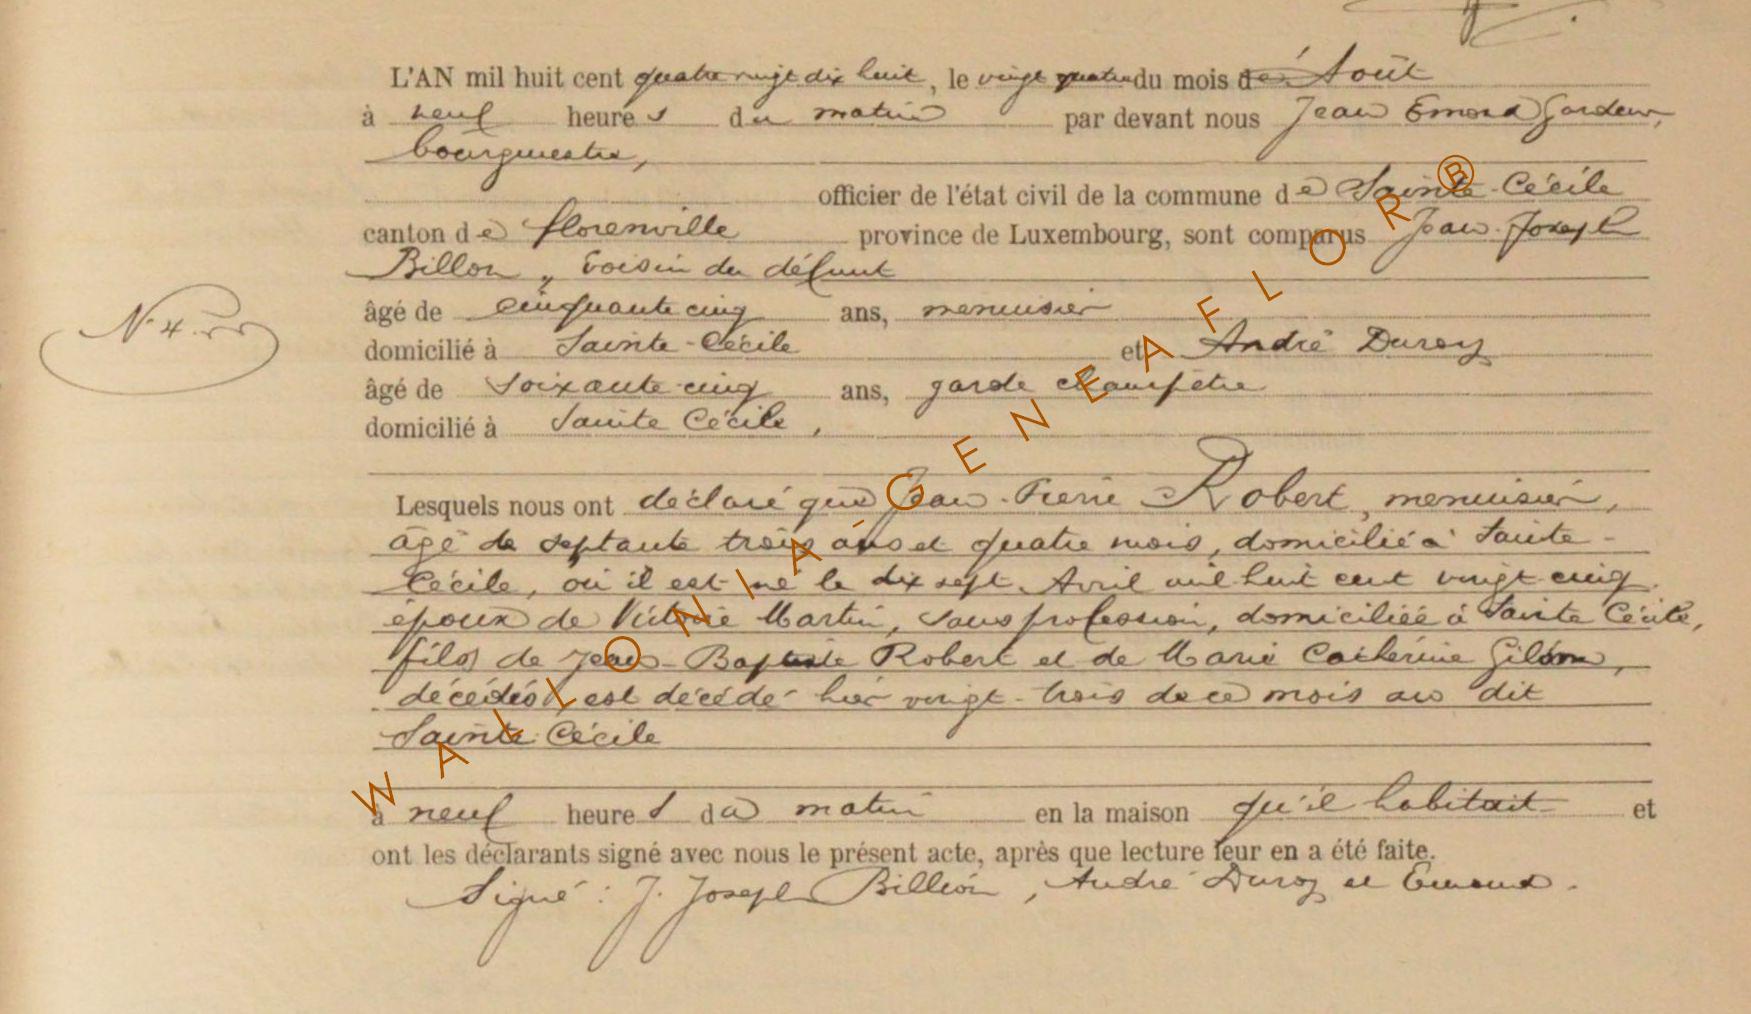 L'AN mil huit cent quatre vingt dix huit, le vingt quatre du mois d' Août
à neuf heures du matin par devant nous Jean Emond
bourgmestre,
officier de l'état civil de la commune de Sainte-Cécile
canton de florenville province de Luxembourg, sont comparus Jean-Joseph
Billon, voisin du défunt
N. 4.
âgé de cinquante cinq ans, menuisier
domicilié à Sainte-Cécile et André Duroy
âgé de soixante-cinq ans, garde champêtre
domicilié à Sainte Cécile,
Lesquels nous ont déclaré que Jean-Pierre Robert, menuisier,
âgé de septante trois ans et quatre mois, domicilié à Sainte-
Cécile, où il est né le dix sept Avril mil huit cent vingt-cinq
époux de Victorie Martin, sans profession, domiciliée à Sainte Cécile,
fils de Jean-Baptiste Robert et de Marie Catherine
décédés, est décédé hier vingt-trois de ce mois au dit
Sainte Cécile
à neuf heures du matin en la maison qu'il habitait et
ont les déclarants signé avec nous le présent acte, après que lecture leur en a été faite.
Signé: J. Joseph Billion, André Duroy et Emond.
WALLONIA GENEAFLOR®